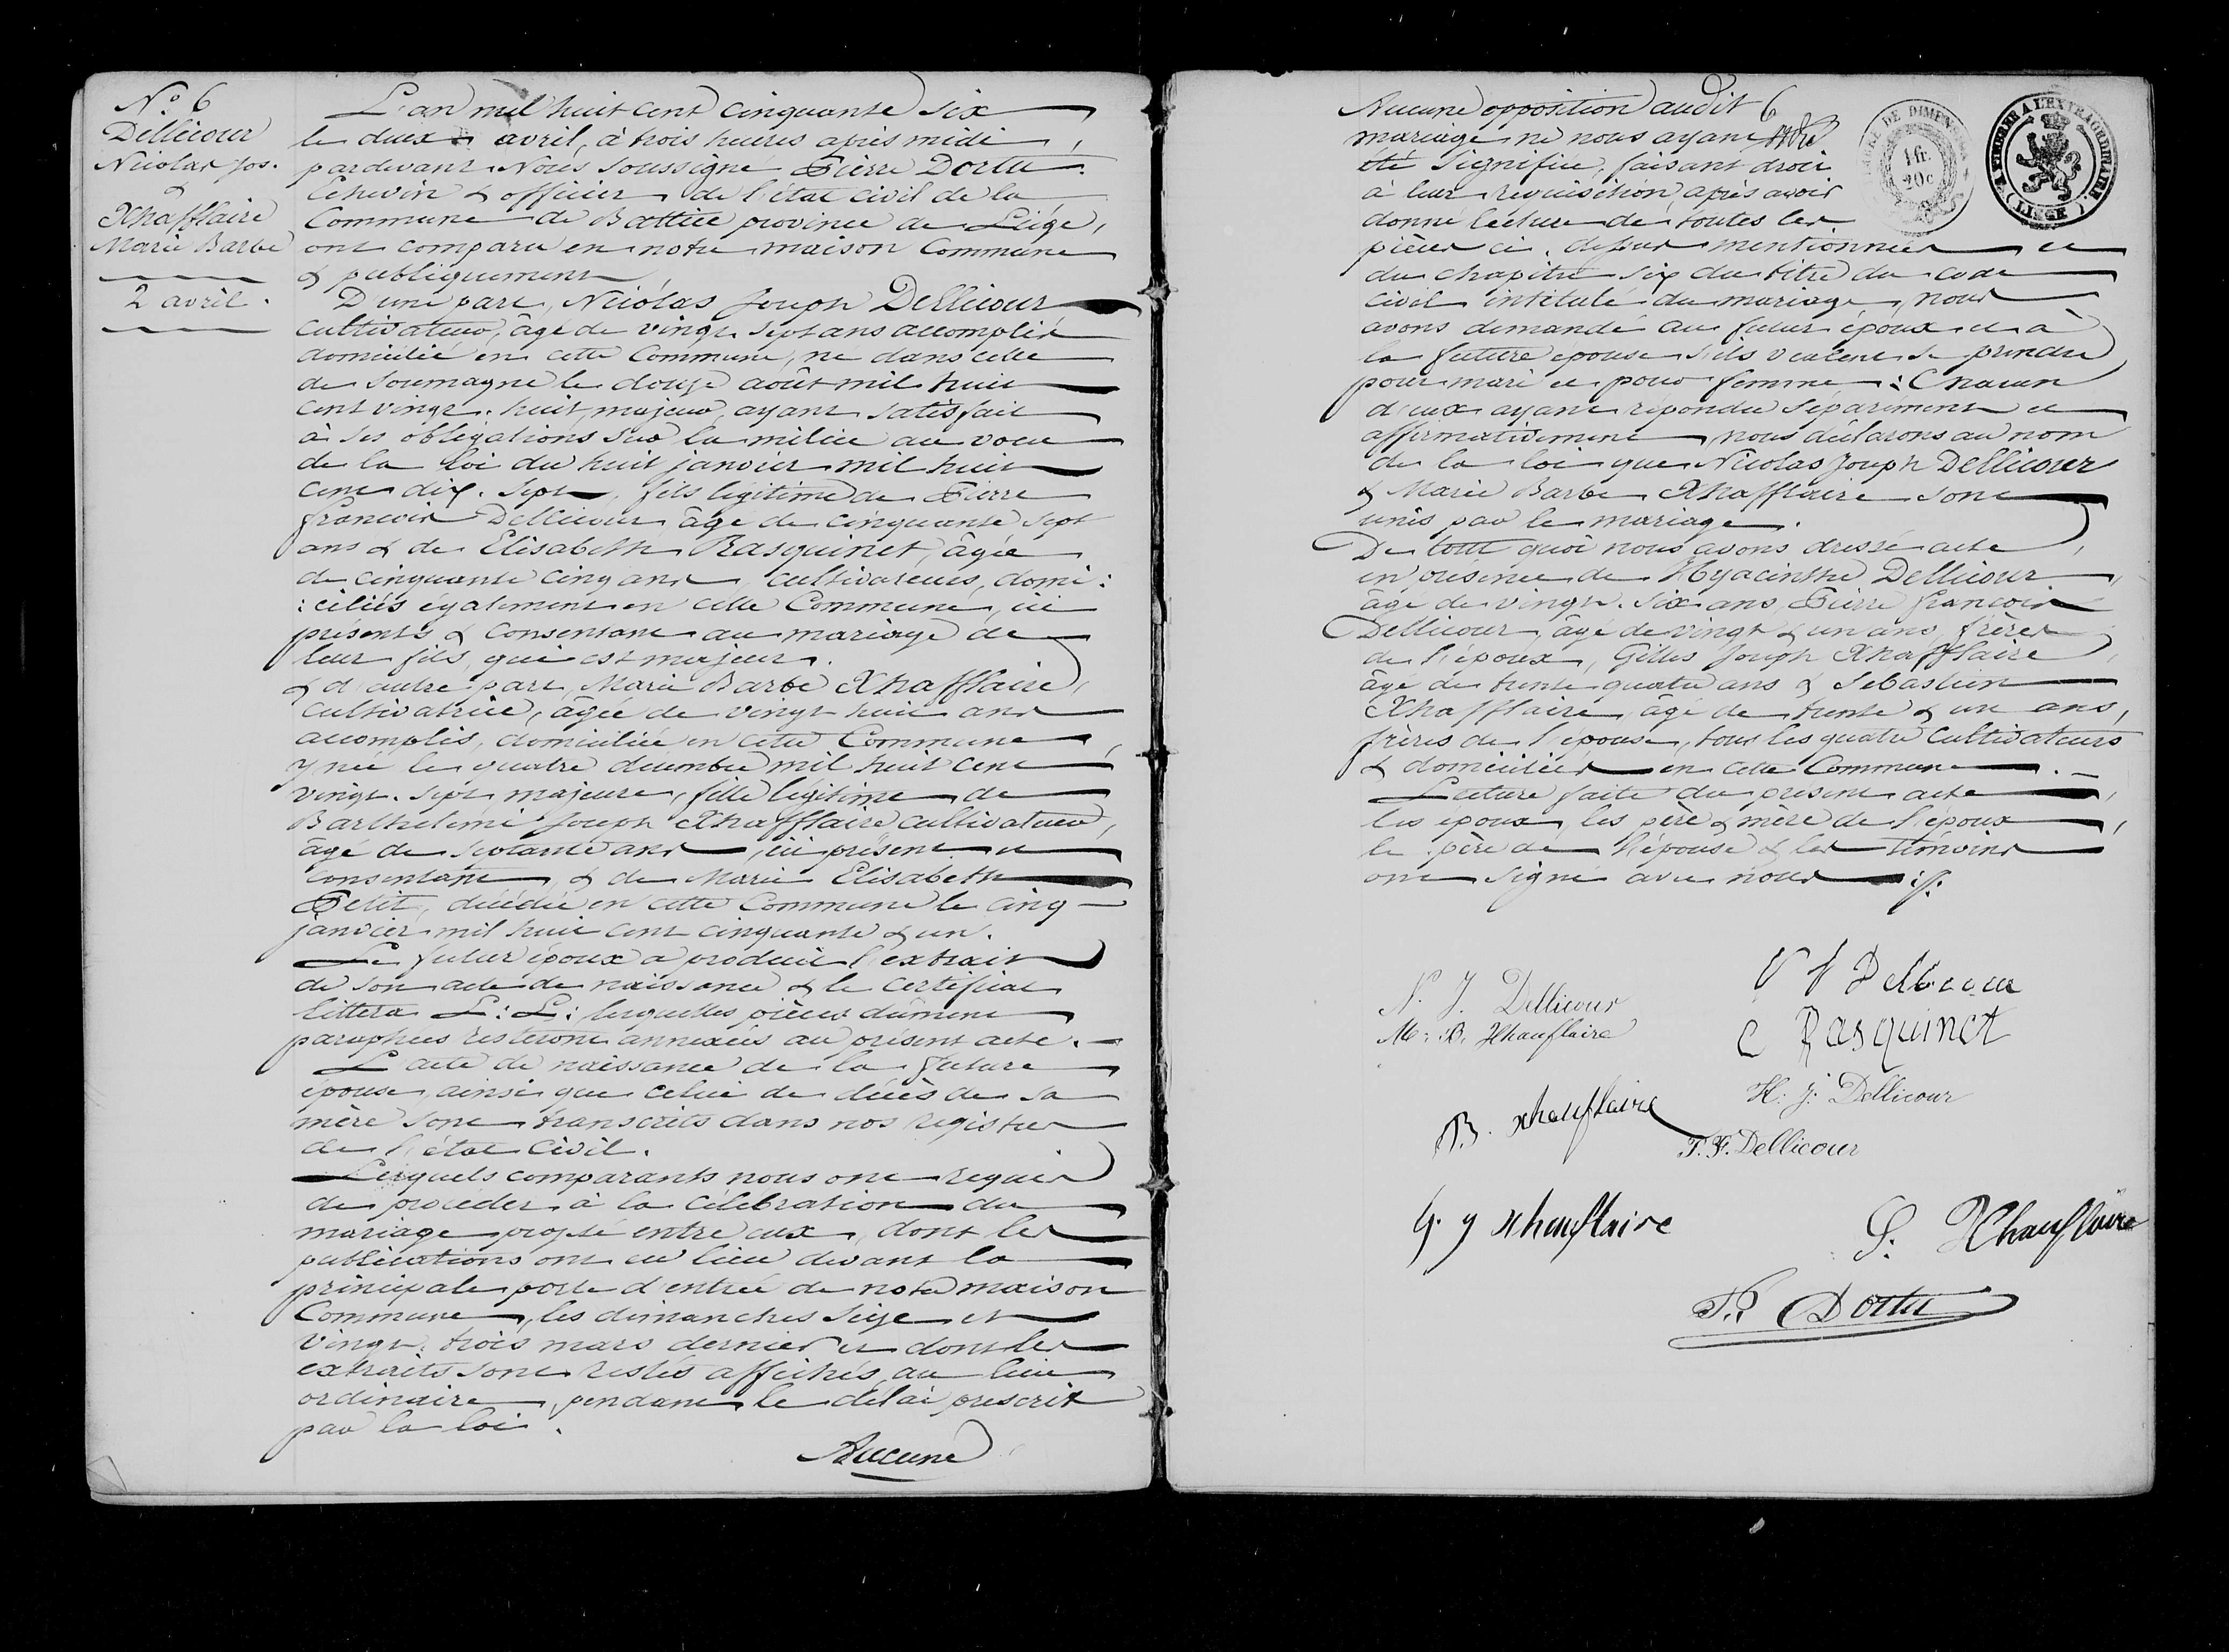 N° 6
Dellicour
Nicolas Jos.
&
Xhafflaire
Marie Barbe
2 avril.
L'an mil huit cent cinquante six
le deux avril, à trois heures après midi,
pardevant Nous soussigné Pierre Dortu
Echevin & officier de l'état civil de la
Commune de Battice province de Liége,
ont comparu en notre maison Commune
& publiquement,
D'une part, Nicolas Joseph Dellicour
cultivateur, âgé de vingt sept ans accomplis
domicilié en cette Commune, né dans celle
de Soumagne le douze août mil huit
cent vingt-huit, majeur, ayant satisfait
à ses obligations sur la milice au voeu
de la loi du huit janvier mil huit
cent dix-sept, fils légitime de Pierre
François Dellicour âgé de cinquante sept
ans & de Elisabeth Rasquinet, âgée
de cinquante cinq ans, cultivateurs, domi:
:ciliés également en cette Commune, ici
présents & consentant au mariage de
leur fils, qui est majeur.
& d'autre part, Marie Barbe Xhafflaire,
cultivatrice, âgée de vingt huit ans
accomplis, domiciliée en cette Commune,
y née le quatre décembre mil huit cent
vingt-sept, majeure, fille légitime de
Barthelemi Joseph Xhafflaire, cultivateur,
âgé de septante ans, ici présent et
consentant, & de Marie Elisabeth
Petit, décédée en cette Commune le cinq
janvier mil huit cent cinquante & un.
Le futur époux a produit l'extrait
de son acte de naissance & le certificat
littera L:L: lesquelles pièces dûment
paraphées resteront annexées au présent acte.
L'acte de naissance de la future
épouse, ainsi que celui de décès de sa
mère sont transcrits dans nos registres
de l'état civil.
Lesquels comparants nous ont requis
de procéder à la célébration du
mariage projeté entre eux, dont les
publications ont eu lieu devant la
principale porte d'entrée de notre maison
Commune, les dimanches seize et
vingt-trois mars dernier et dont les
extraits sont restés affichés au lieu
ordinaire, pendant le délai prescrit
par la loi.
Aucune
Aucune opposition audit 6
mariage ne nous ayant
été signifiée, faisant droit
à leur requisition après avoir
donné lecture de toutes les
pièces ci-dessus mentionnées et
du chapitre six du titre du code
civil intitulé du mariage, nous
avons demandé au futur époux et à
la future épouse s'ils veulent se prendre
pour mari et pour femme : Chacun
d'eux ayant répondu séparément et
affirmativement, nous déclarons au nom
de la loi que Nicolas Joseph Dellicour
& Marie Barbe Xhafflaire sont
unis par le mariage.
De tout quoi nous avons dressé acte,
en présence de Hyacinthe Dellicour,
âgé de vingt-six ans, Pierre François
Dellicour, âgé de vingt & un ans, frères
de l'époux, Gilles Joseph Xhafflaire,
âgé de trente quatre ans & Sebastien
Xhafflaire, âgé de trente & un ans,
frères de l'épouse, tous les quatre cultivateurs
& domiciliés en cette Commune.
Lecture faite du présent acte,
les époux, les père & mère de l'époux,
le père de l'épouse & les témoins
ont signé avec nous
TIMBRE DE DIMENSION
1 fr.
20 c
A TIMBRER A L'EXTRAORDINAIRE
(LIEGE)
N. J. Dellicour
P F Dellicour
M: B. Xhauflaire
E Rasquinet
H. J. Dellicour
B. xhauflaire
P. F. Dellicour
G. J xhauflaire
S: Xhauflaire
P. Dortu